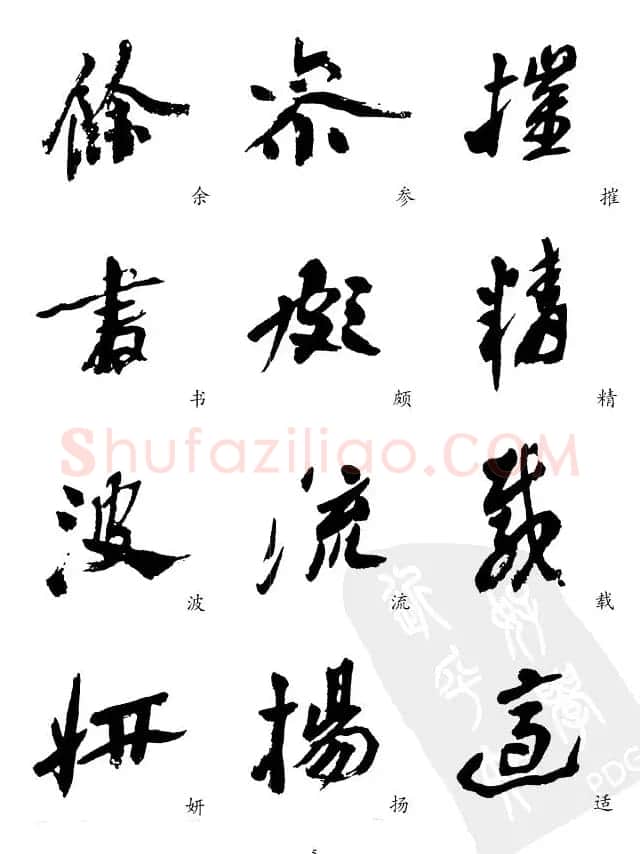 餘 參 摧
余 参 摧
書 頗 精
书 颇 精
Shufaziliao.COM
波 流 載
波 流 载
妍 揚 適
PDG
妍 扬 适
5